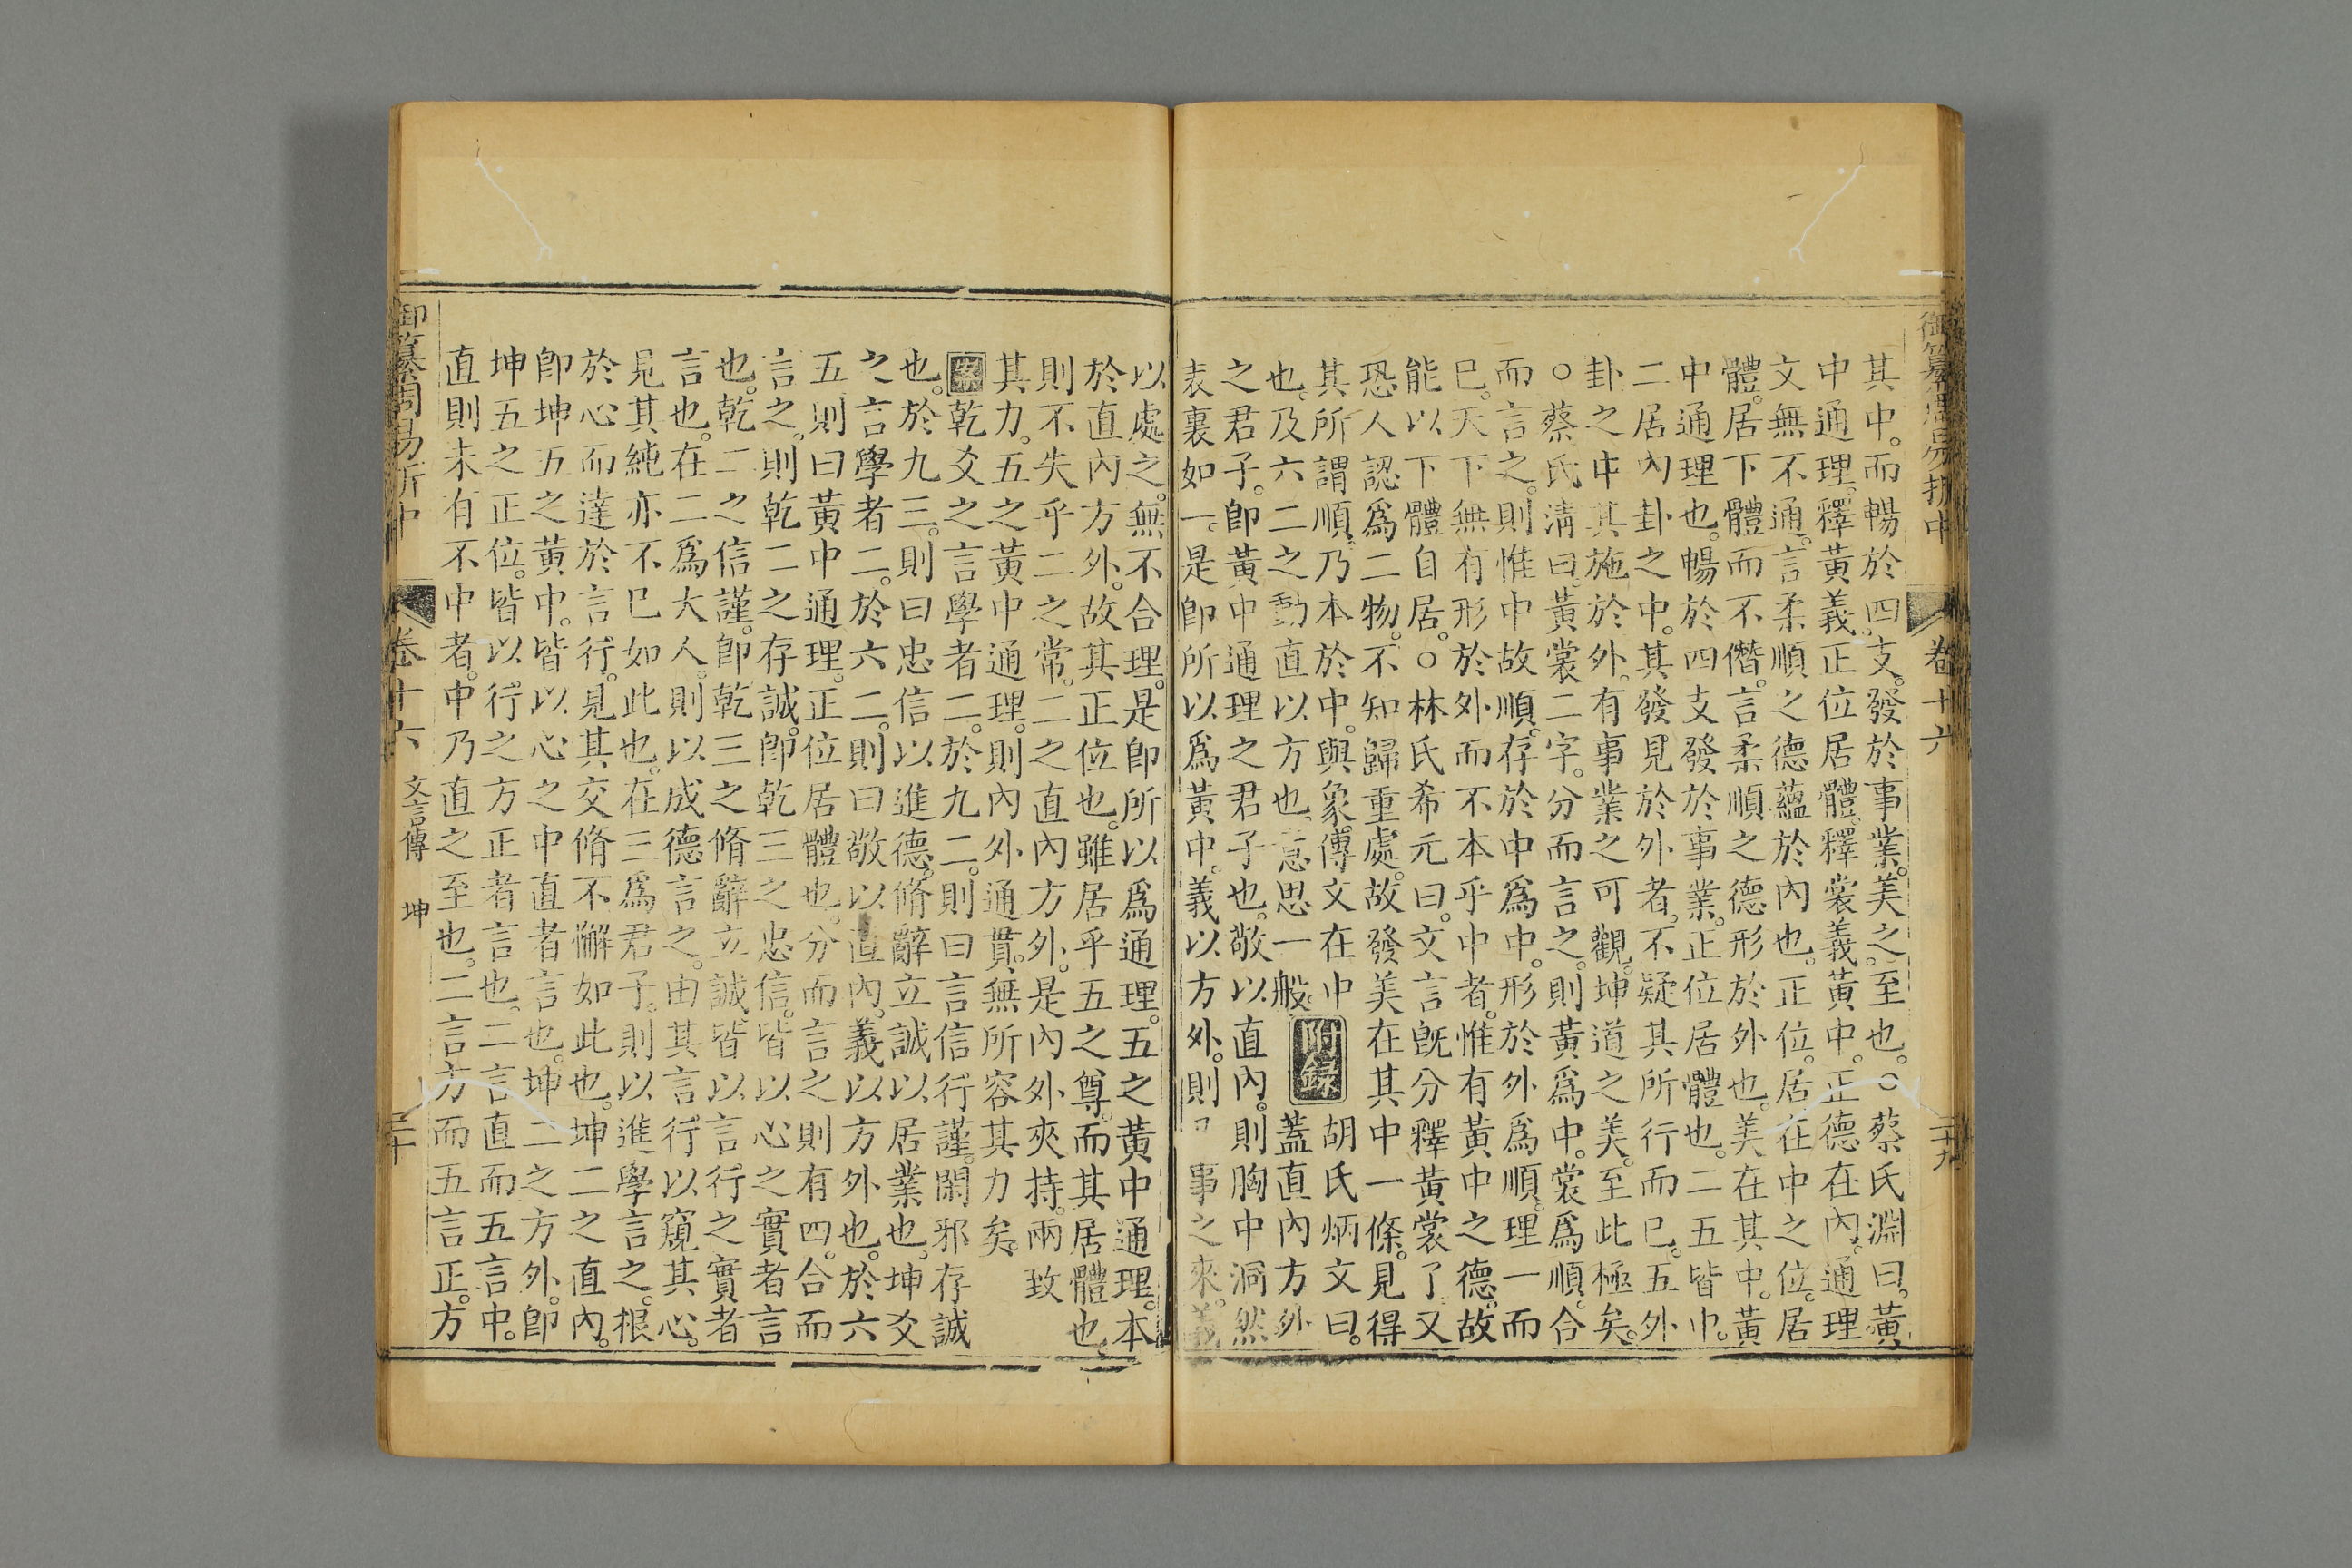 其中。而暢於四支。發於事業。美之至也。○蔡氏淵曰。黃
中通理。釋黃義。正位居體。釋裳義。黃中。正德在內。通理
文無不通。言柔順之德蘊於內也。正位。居在中之位。居
體。居下體而不僭。言柔順之德形於外也。美在其中。黃
中通理也。暢於四支發於事業。正位居體也。二五皆中。
二居內卦之中。其發見於外者。不疑其所行而已。五外
卦之中。其施於外。有事業之可觀。坤道之美。至此極矣。
○蔡氏清曰。黃裳二字。分而言之。則黃爲中。裳爲順。合
而言之。則惟中故順。存於中爲中。形於外爲順。理一而
已。天下無有形於外而不本乎中者。惟有黃中之德。故
能以下體自居。○林氏希元曰。文言旣分釋黃裳了又
恐人認爲二物。不知歸重處。故發美在其中一條。見得
其所謂順。乃本於中。與象傳文在中
也。及六二之動直以方也意思一般。
附錄
胡氏炳文曰。
蓋直內方外
之君子。卽黃中通理之君子也。敬以直內。則胸中洞然
表裏如一。是卽所以爲黃中。義以方外。則事之來。義
以處之。無不合理。是卽所以爲通理。五之黃中通理。本
於直內方外。故其正位也。雖居乎五之尊。而其居體也。
則不失乎二之常。二之直內方外。是內外夾持。兩致
其力。五之黃中通理。則內外通貫。無所容其力矣。
案乾爻之言學者二。於九二。則曰言信行謹。閑邪存誠
也。於九三。則曰忠信以進德。脩辭立誠以居業也。坤爻
之言學者二。於六二。則曰敬以直內。義以方外也。於六
五則曰黃中通理。正位居體也。分而言之則有四。合而
言之。則乾二之存誠。卽乾三之忠信。皆以心之實者言
也。乾二之信謹。卽乾三之脩辭立誠。皆以言行之實者
言也。在二爲大人。則以成德言之。由其言行以窺其心。
見其純亦不已如此也。在三爲君子。則以進學言之。根
於心而達於言行。見其交脩不懈如此也。坤二之直內。
卽坤五之黃中。皆以心之中直者言也。坤二之方外。卽
坤五之正位。皆以行之方正者言也。二言直而五言中。
直則未有不中者。中乃直之至也。二言方而五言正。方
御纂周易折中
卷十六
文言傳 坤
三十